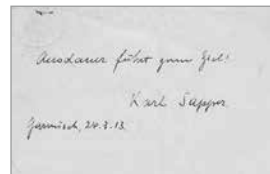 Ausdauer führt zum Ziel!
Karl Sapper
Garmisch, 24.3.13.